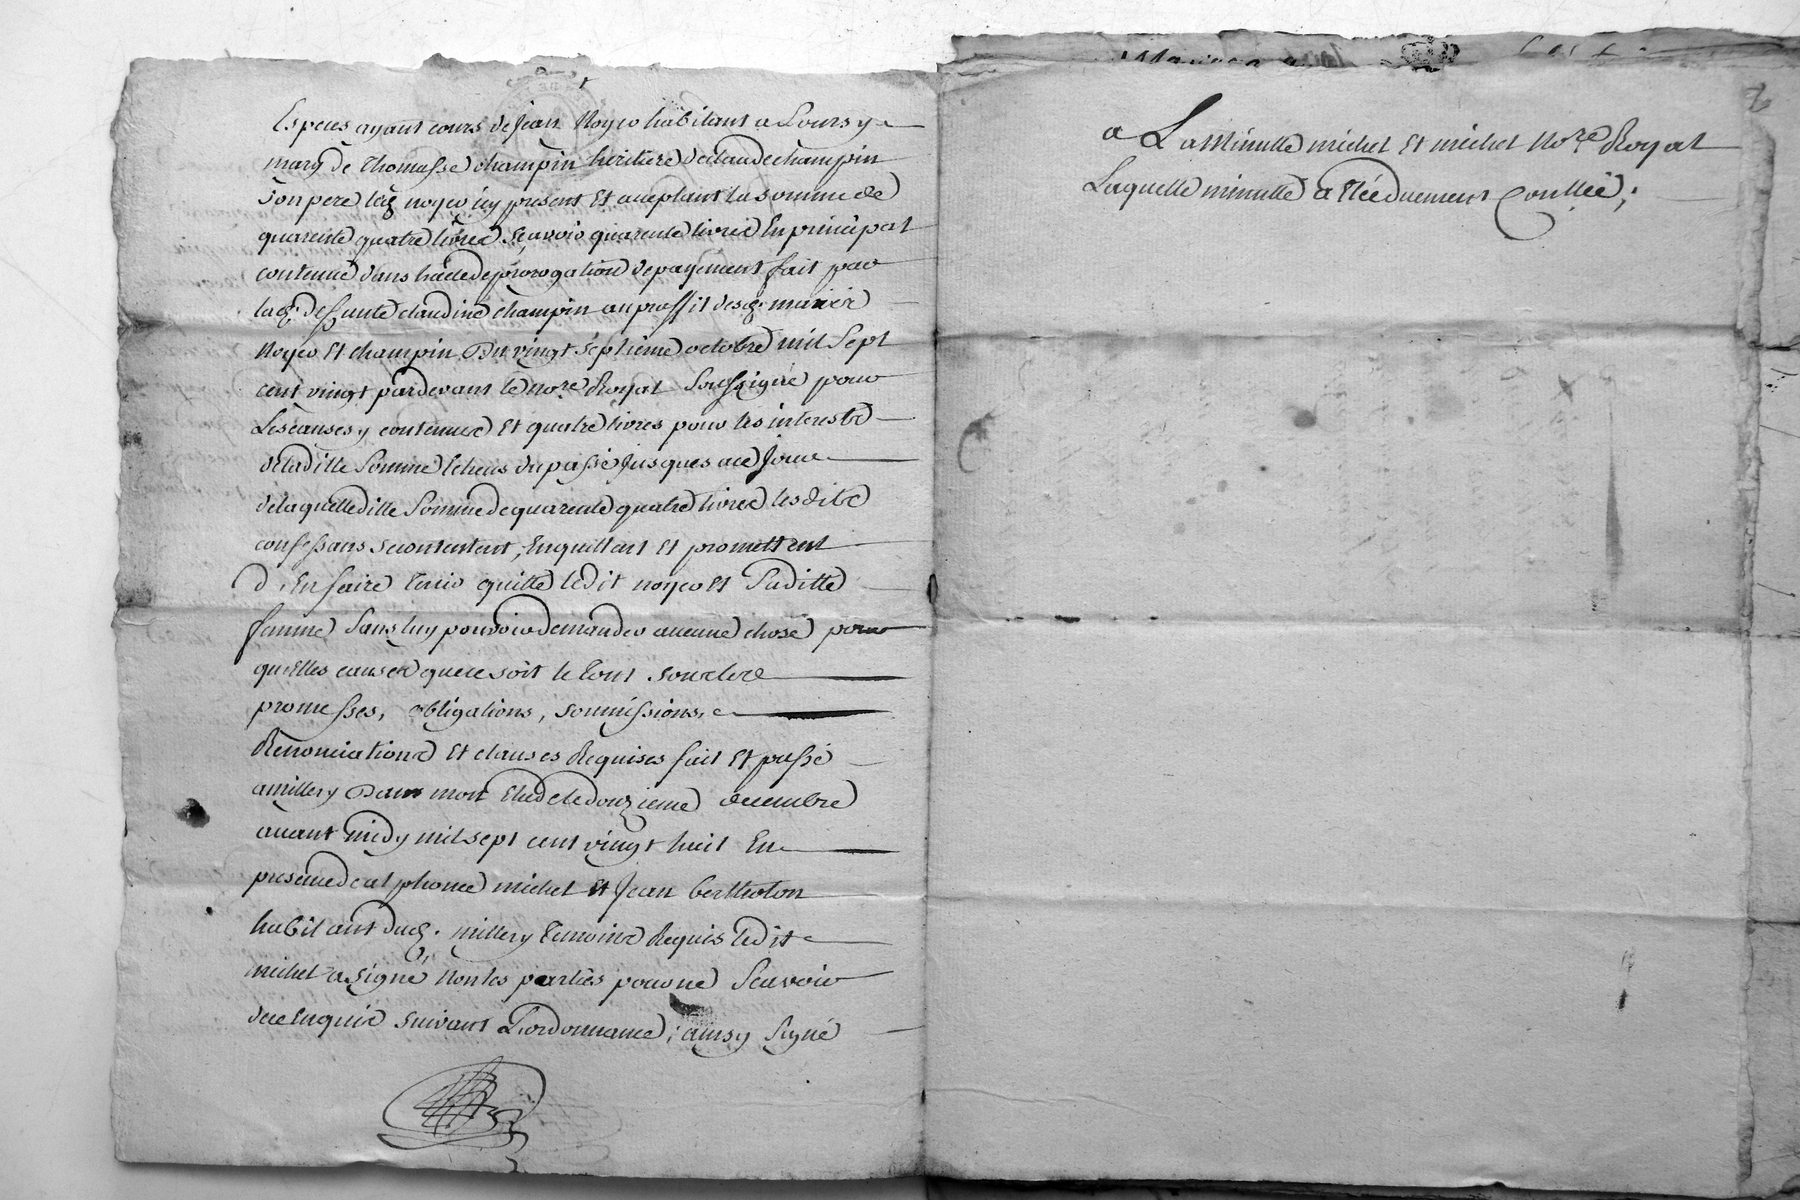 Especes ayant cours de Jean Noyer habitant a Soursy
mary de Thomasse champin heritiere de claude champin
Son pere led noyer icy present Et acceptant la somme de
quarente quatre livres Sçavoir quarente livres En principal
contenue dans lacte de prorogation de payement fait par
lad. deffunte claudine champin au proffit desd. mariés
Noyer Et champin Du vingt septieme octobre mil Sept
cent vingt pardevant le nore Royal Soussigné pour
Les causes y contenues Et quatre livres pour les interests
de laditte Somme Echeus du passé Jusques a ce Jour
de laquelle ditte Somme de quarente quatre livres lesdits
confessans se contentent, Enquittent Et promettent
d'En faire tenir quitte ledit noyer Et Saditte
femme Sans luy pouvoir demander aucune chose pour
quelles causes que ce soit le tout sous les
promesses, obligations, soumissions,
Renonciations Et clauses Requises fait Et passé
a millery Dans mon Etude le douzieme decembre
avant midy mil sept cent vingt huit En
presence de alphonce michel Et Jean bertholon
habitant dud. millery temoins Requis ledit
michel a signé Non les parties pour ne Sçavoir
de ce Enquis suivant L'ordonnance; ainsy Signé
a La Minutte michel Et michel Nore Royal
Laquelle minutte a Eté duement Conllée;